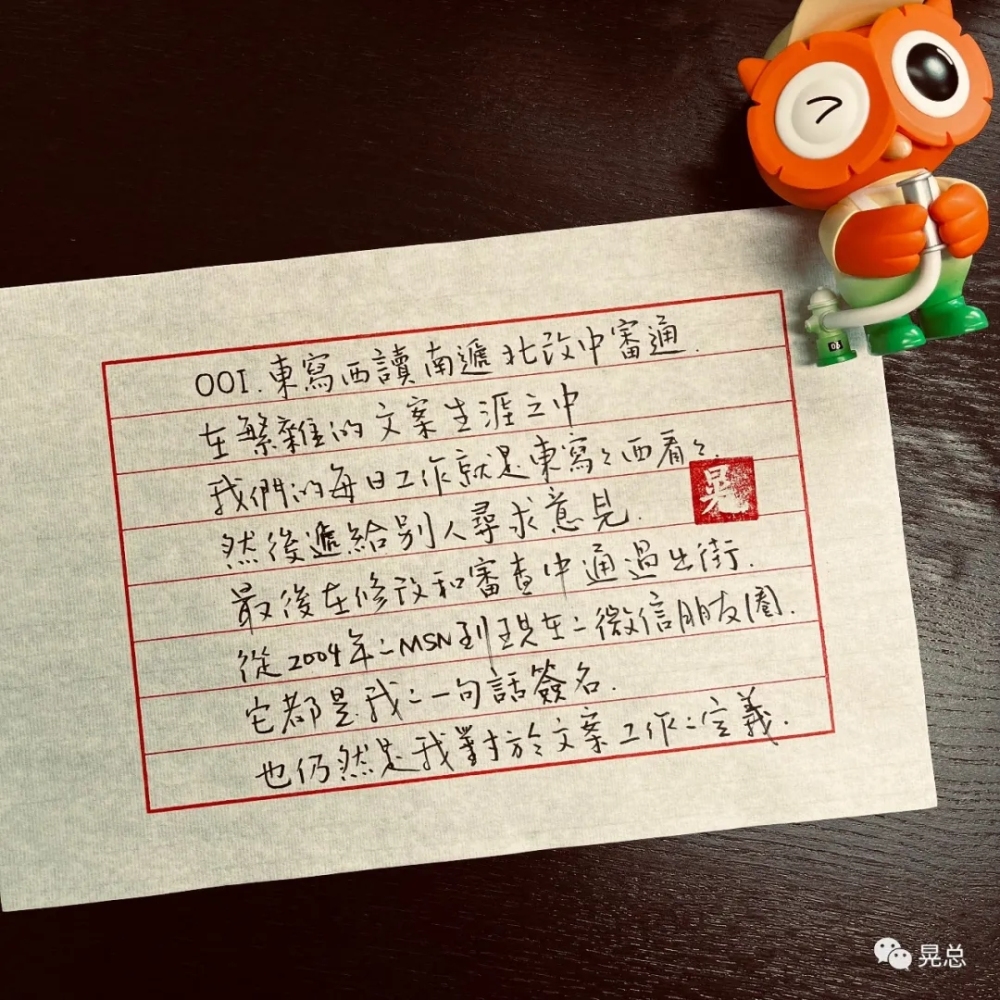 001.東寫西讀南遞北改中審通.
在繁雜的文案生涯之中
我們的每日工作就是東寫々西看々.
晃
然後遞給別人尋求意見.
最後在修改和審查中通過出街.
從2004年:MSN到現在:微信朋友圈.
它都是我:一句話簽名.
也仍然是我對於文案工作:定義.
晃总